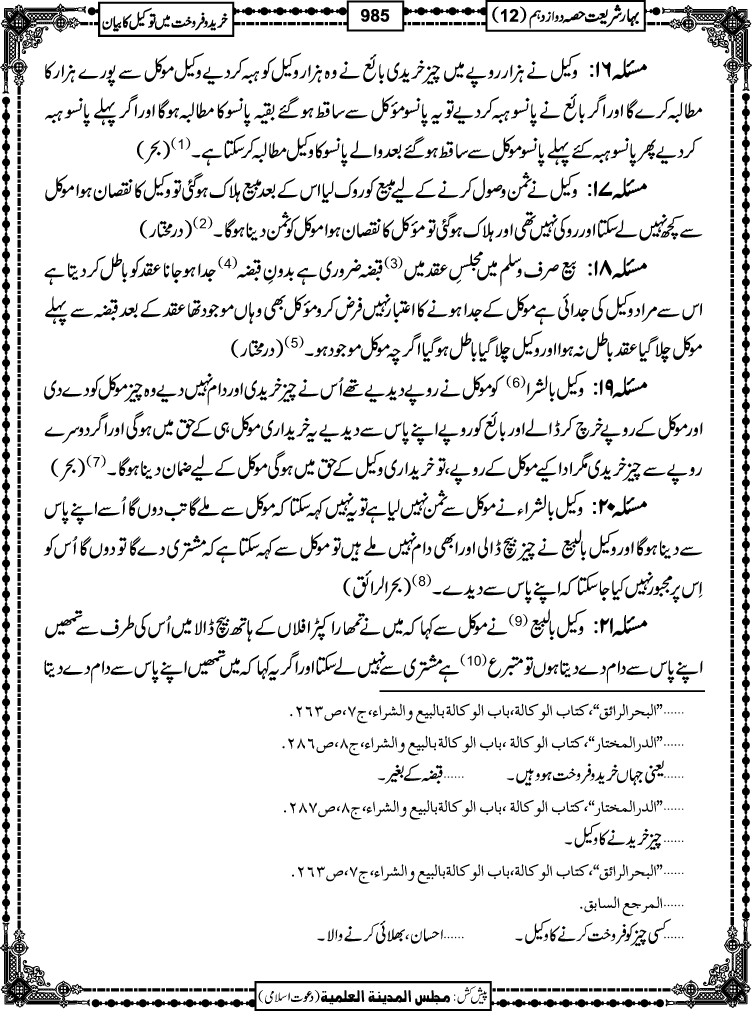 بہار شریعت حصہ دوازدہم (12)
985
خرید و فروخت میں توکیل کا بیان
مسئلہ ۱۶: وکیل نے ہزار روپے میں چیز خریدی بائع نے وہ ہزار وکیل کو ہبہ کر دیے وکیل موکل سے پورے ہزار کا
مطالبہ کرے گا اور اگر بائع نے پانسو ہبہ کر دیے تو یہ پانسو مؤکل سے ساقط ہو گئے بقیہ پانسو کا مطالبہ ہوگا اور اگر پہلے پانسو ہبہ
کر دیے پھر پانسو ہبہ کئے پہلے پانسو موکل سے ساقط ہو گئے بعد والے پانسو کا وکیل مطالبہ کرسکتا ہے۔(1) (بحر)
مسئلہ ۱۷: وکیل نے ثمن وصول کرنے کے لیے مبیع کو روک لیا اس کے بعد مبیع ہلاک ہو گئی تو وکیل کا نقصان ہوا موکل
سے کچھ نہیں لے سکتا اور روکی نہیں تھی اور ہلاک ہو گئی تو مؤکل کا نقصان ہوا موکل کو ثمن دینا ہوگا۔(2) (درمختار)
مسئلہ ۱۸: بیع صرف و سلم میں مجلسِ عقد میں(3) قبضہ ضروری ہے بدونِ قبضہ(4) جدا ہو جانا عقد کو باطل کر دیتا ہے
اس سے مراد وکیل کی جدائی ہے موکل کے جدا ہونے کا اعتبار نہیں فرض کرو مؤکل بھی وہاں موجود تھا عقد کے بعد قبضہ سے پہلے
موکل چلا گیا عقد باطل نہ ہوا اور وکیل چلا گیا باطل ہو گیا اگرچہ موکل موجود ہو۔(5) (درمختار)
مسئلہ ۱۹: وکیل بالشرا(6) کو موکل نے روپے دیدیے تھے اُس نے چیز خریدی اور دام نہیں دیے وہ چیز موکل کو دے دی
اور موکل کے روپے خرچ کر ڈالے اور بائع کو روپے اپنے پاس سے دیدیے یہ خریداری موکل ہی کے حق میں ہوگی اور اگر دوسرے
روپے سے چیز خریدی مگر ادا کیے موکل کے روپے، تو خریداری وکیل کے حق میں ہوگی موکل کے لیے ضمان دینا ہوگا۔(7) (بحر)
مسئلہ ۲۰: وکیل بالشراء نے موکل سے ثمن نہیں لیا ہے تو یہ نہیں کہہ سکتا کہ موکل سے ملے گا تب دوں گا اُسے اپنے پاس
سے دینا ہوگا اور وکیل بالبیع نے چیز بیچ ڈالی اور ابھی دام نہیں ملے ہیں تو موکل سے کہہ سکتا ہے کہ مشتری دے گا تو دوں گا اُس کو
اِس پر مجبور نہیں کیا جا سکتا کہ اپنے پاس سے دیدے۔(8) (بحرالرائق)
مسئلہ ۲۱: وکیل بالبیع(9) نے موکل سے کہا کہ میں نے تمھارا کپڑا فلاں کے ہاتھ بیچ ڈالا میں اُس کی طرف سے تمھیں
اپنے پاس سے دام دے دیتا ہوں تو متبرع(10) ہے مشتری سے نہیں لے سکتا اور اگر یہ کہا کہ میں تمھیں اپنے پاس سے دام دے دیتا
......”البحرالرائق“، کتاب الوکالة، باب الوکالة بالبیع والشراء، ج۷، ص۲۶۳.
......”الدرالمختار“، کتاب الوکالة، باب الوکالة بالبیع والشراء، ج۸، ص۲۸۶.
......یعنی جہاں خرید و فروخت ہو وہیں۔ ......قبضہ کے بغیر۔
......”الدرالمختار“، کتاب الوکالة، باب الوکالة بالبیع والشراء، ج۸، ص۲۸۷.
......چیز خریدنے کا وکیل۔
......”البحرالرائق“، کتاب الوکالة، باب الوکالة بالبیع والشراء، ج۷، ص۲۶۳.
......المرجع السابق.
......کسی چیز کو فروخت کرنے کا وکیل۔ ......احسان، بھلائی کرنے والا۔
پیش کش: مجلس المدینة العلمیة (دعوت اسلامی)